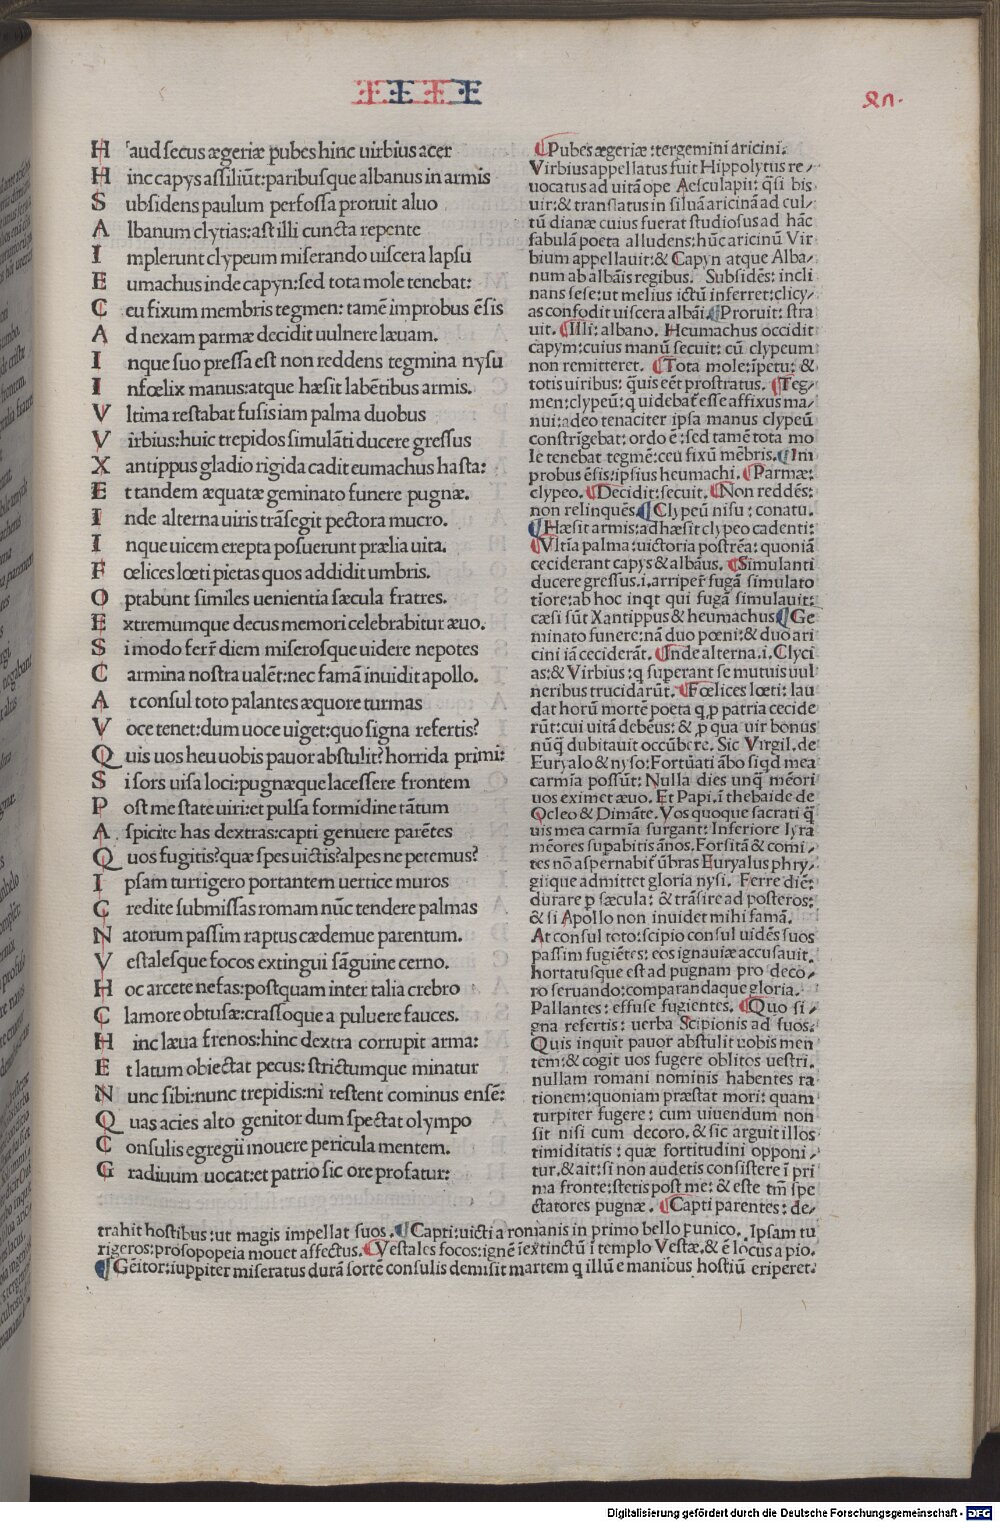 IIII
H aud secus ægeriæ pubes hinc uirbius acer
H inc capys assiliūt:paribusque albanus in armis
S ubsidens paulum perfossa proruit aluo
A lbanum clytias:ast illi cuncta repente
I mplerunt clypeum miserando uiscera lapsu
E umachus inde capyn:sed tota mole tenebat:
C eu fixum membris tegmen: tamē improbus ēsis
A d nexam parmæ decidit uulnere læuam.
I nque suo pressa est non reddens tegmina nysu
I nfœlix manus:atque hæsit labētibus armis.
V ltima restabat fusis iam palma duobus
V irbius:huic trepidos simulāti ducere gressus
X antippus gladio rigida cadit eumachus hasta:
E t tandem æquatæ geminato funere pugnæ.
I nde alterna uiris trāsegit pectora mucro.
I nque uicem erepta posuerunt prælia uita.
F œlices lœti pietas quos addidit umbris.
O ptabunt similes uenientia sæcula fratres.
E xtremumque decus memori celebrabitur æuo.
S i modo ferr̄ diem miserosque uidere nepotes
C armina nostra ualēt:nec famā inuidit apollo.
A t consul toto palantes æquore turmas
V oce tenet:dum uoce uiget:quo signa refertis?
Q uis uos heu uobis pauor abstulit? horrida primi:
S i sors uisa loci:pugnæque lacessere frontem
P ost me state uiri:et pulsa formidine tātum
A spicite has dextras:capti genuere parētes
Q uos fugitis?quæ spes uictis?alpes ne petemus?
I psam turrigero portantem uertice muros
C redite submissas romam nūc tendere palmas
N atorum passim raptus cædemue parentum.
V estalesque focos extingui sāguine cerno.
H oc arcete nefas:postquam inter talia crebro
C lamore obtusæ:crassoque a puluere fauces.
H inc læua frenos:hinc dextra corrupit arma:
E t latum obiectat pecus: strictumque minatur
N unc sibi:nunc trepidis:ni restent cominus ensē:
Q uas acies alto genitor dum spectat olympo
C onsulis egregii mouere pericula mentem.
G radiuum uocat:et patrio sic ore profatur:
Pubes ægeriæ :tergemini aricini.
Virbius appellatus fuit Hippolytus re
uocatus ad uitā ope Aesculapii: q̄si bis
uir:& translatus in siluā aricinā ad cul
tū dianæ cuius fuerat studiosus ad hāc
fabulā poeta alludens:hūc aricinū Vir
bium appellauit:& Capyn atque Alba
num ab albāis regibus. Subsidēs: incli
nans sese:ut melius ictū inferret:clicy
as confodit uiscera albāi. Proruit: stra
uit. Illi: albano. Heumachus occidit
capym:cuius manū secuit: cū clypeum
non remitteret. Tota mole:īpetu: &
totis uiribus: q̄uis eēt prostratus. Teg
men:clypeū:q uidebat̄ esse affixus ma
nui:adeo tenaciter ipsa manus clypeū
constrīgebat: ordo ē:sed tamē tota mo
le tenebat tegmē:ceu fixū mēbris. Im
probus ēsis:ipsius heumachi. Parmæ:
clypeo. Decidit:secuit. Non reddēs:
non relinquēs. Clypeū nisu: conatu.
Hæsit armis:adhæsit clypeo cadenti:
Vltīa palma:uictoria postrēa: quoniā
ceciderant capys & albāus. Simulanti
ducere gressus.i.arriper̄ fugā simulato
tiore:ab hoc inqt qui fugā simulauit:
cæsi sūt Xantippus & heumachus Ge
minato funere:nā duo pœni:& duo ari
cini iā ceciderāt. Inde alterna.i.Clyci
as:& Virbius:q superant se mutuis uul
neribus trucidarūt. Fœlices lœti: lau
dat horū mortē poeta q p patria cecide
rūt:cui uitā debēus:& p qua uir bonus
nūq̄ dubitauit occūbere. Sic Virgil.de
Euryalo & nyso:Fortūati ābo siqd mea
carmīa possūt: Nulla dies unq̄ mēori
uos eximet æuo. Et Papi.ī thebaide de
Ocleo & Dimāte.Vos quoque sacrati q̄
uis mea carmīa surgant: Inferiore lyra
mēores supabitis ānos.Forsitā & comi
tes nō aspernabit̄ ūbras Euryalus phry
giique admittet gloria nysi. Ferre diē:
durare p sæcula: & trāsire ad posteros:
& si Apollo non inuidet mihi famā.
At consul toto:scipio consul uidēs suos
passim fugiētes: eos ignauiæ accusauit.
hortatusque est ad pugnam pro deco
ro seruando:comparandaque gloria.
Pallantes: effuse fugientes. Quo si
gna refertis: uerba Scipionis ad suos.
Quis inquit pauor abstulit uobis men
tem:& cogit uos fugere oblitos uestri.
nullam romani nominis habentes ra
tionem:quoniam præstat mori: quam
turpiter fugere: cum uiuendum non
sit nisi cum decoro. & sic arguit illos
timiditatis: quæ fortitudini opponi
tur.& ait:si non audetis consistere ī pri
ma fronte:stetis post me: & este tm̄ spe
ctatores pugnæ. Capti parentes: de
trahit hostibus:ut magis impellat suos. Capti:uicti a romanis in primo bello punico. Ipsam tu
rigeros:prosopopeia mouet affectus. Vestales focos:ignē īextinctū ī templo Vestæ.& ē locus a pio.
Gēitor:iuppiter miseratus durā sortē consulis demisit martem q illū e manibus hostiū eriperet.
Digitalisierung gefördert durch die Deutsche Forschungsgemeinschaft - DFG